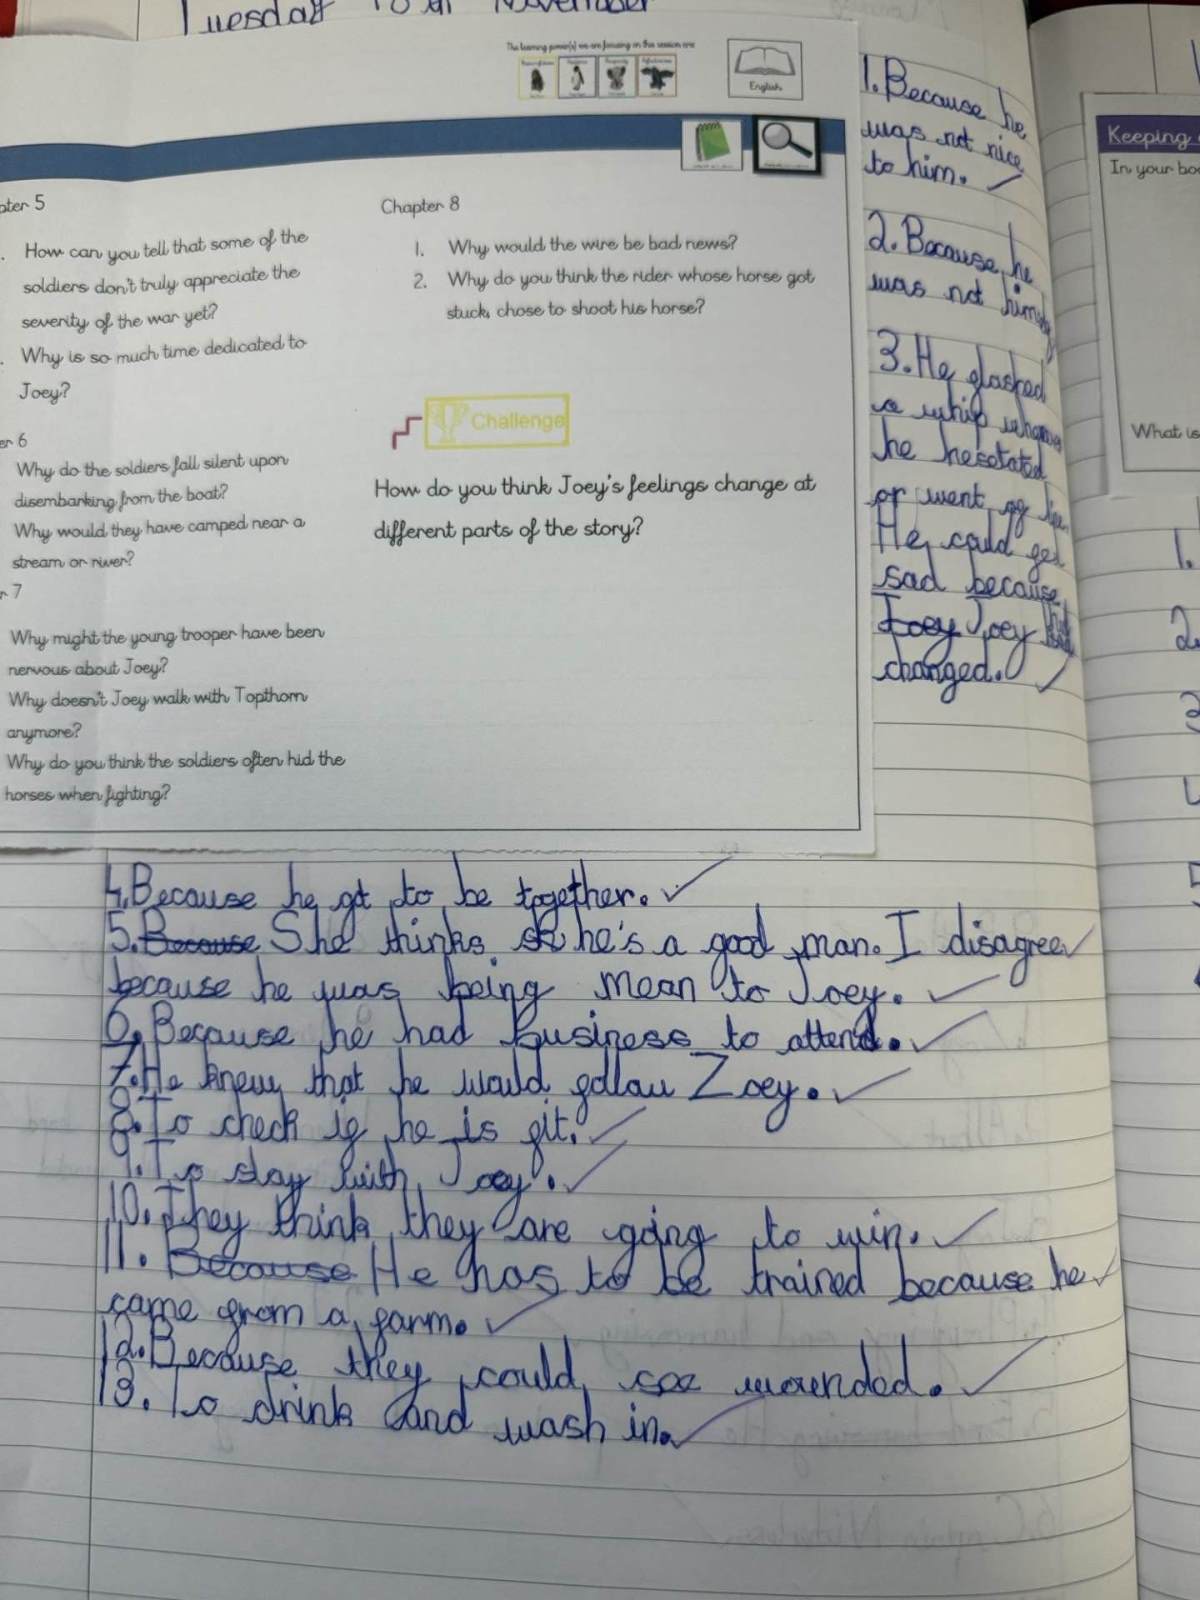 Tuesday 10th November
The learning power(s) we are focusing on this session are:
English
pter 5
How can you tell that some of the
soldiers don't truly appreciate the
severity of the war yet?
Why is so much time dedicated to
Joey?
er 6
Why do the soldiers fall silent upon
disembarking from the boat?
Why would they have camped near a
stream or river?
r 7
Why might the young trooper have been
nervous about Joey?
Why doesn't Joey walk with Topthorn
anymore?
Why do you think the soldiers often hid the
horses when fighting?
Chapter 8
1. Why would the wire be bad news?
2. Why do you think the rider whose horse got
stuck, chose to shoot his horse?
Challenge
How do you think Joey's feelings change at
different parts of the story?
1. Because he
was not nice
to him.
2. Because he
was not
3. He glashed
a whip
he hesetated
or went
He could get
sad because
Joey Joey
changed.
4. Because he got to be together.
5. Because She thinks he's a good man. I disagree
because he was being mean to Joey.
6. Because he had business to attend.
7. He knew that he would follow Zoey.
8. To check if he is fit.
9. To stay with Joey.
10. They think they are going to win.
11. Because He has to be trained because he
came from a farm.
12. Because they could see wounded.
13. To drink and wash in.
Keeping
In your bo
What is
1.
2.
3
5